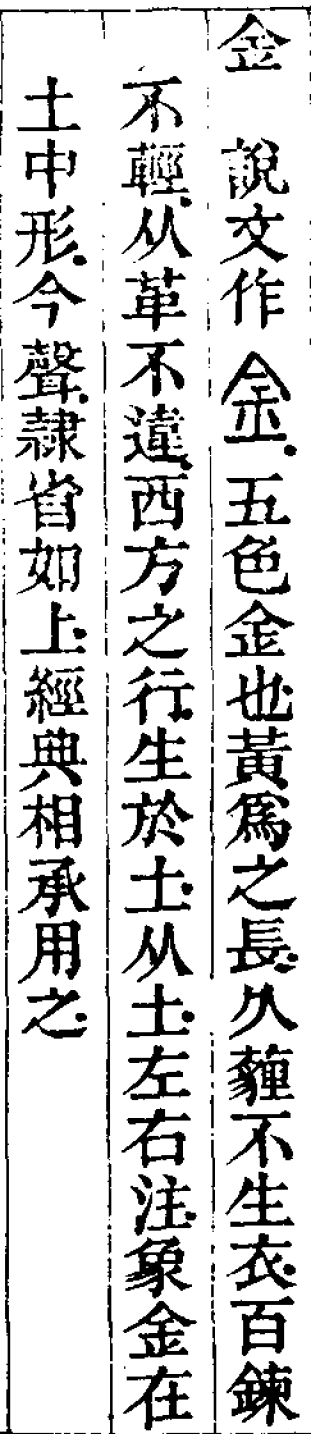 金　說文作金五色金也黃爲之長久薶不生衣百鍊
不輕从革不違西方之行生於土从土左右注象金在
土中形今聲隷省如上經典相承用之